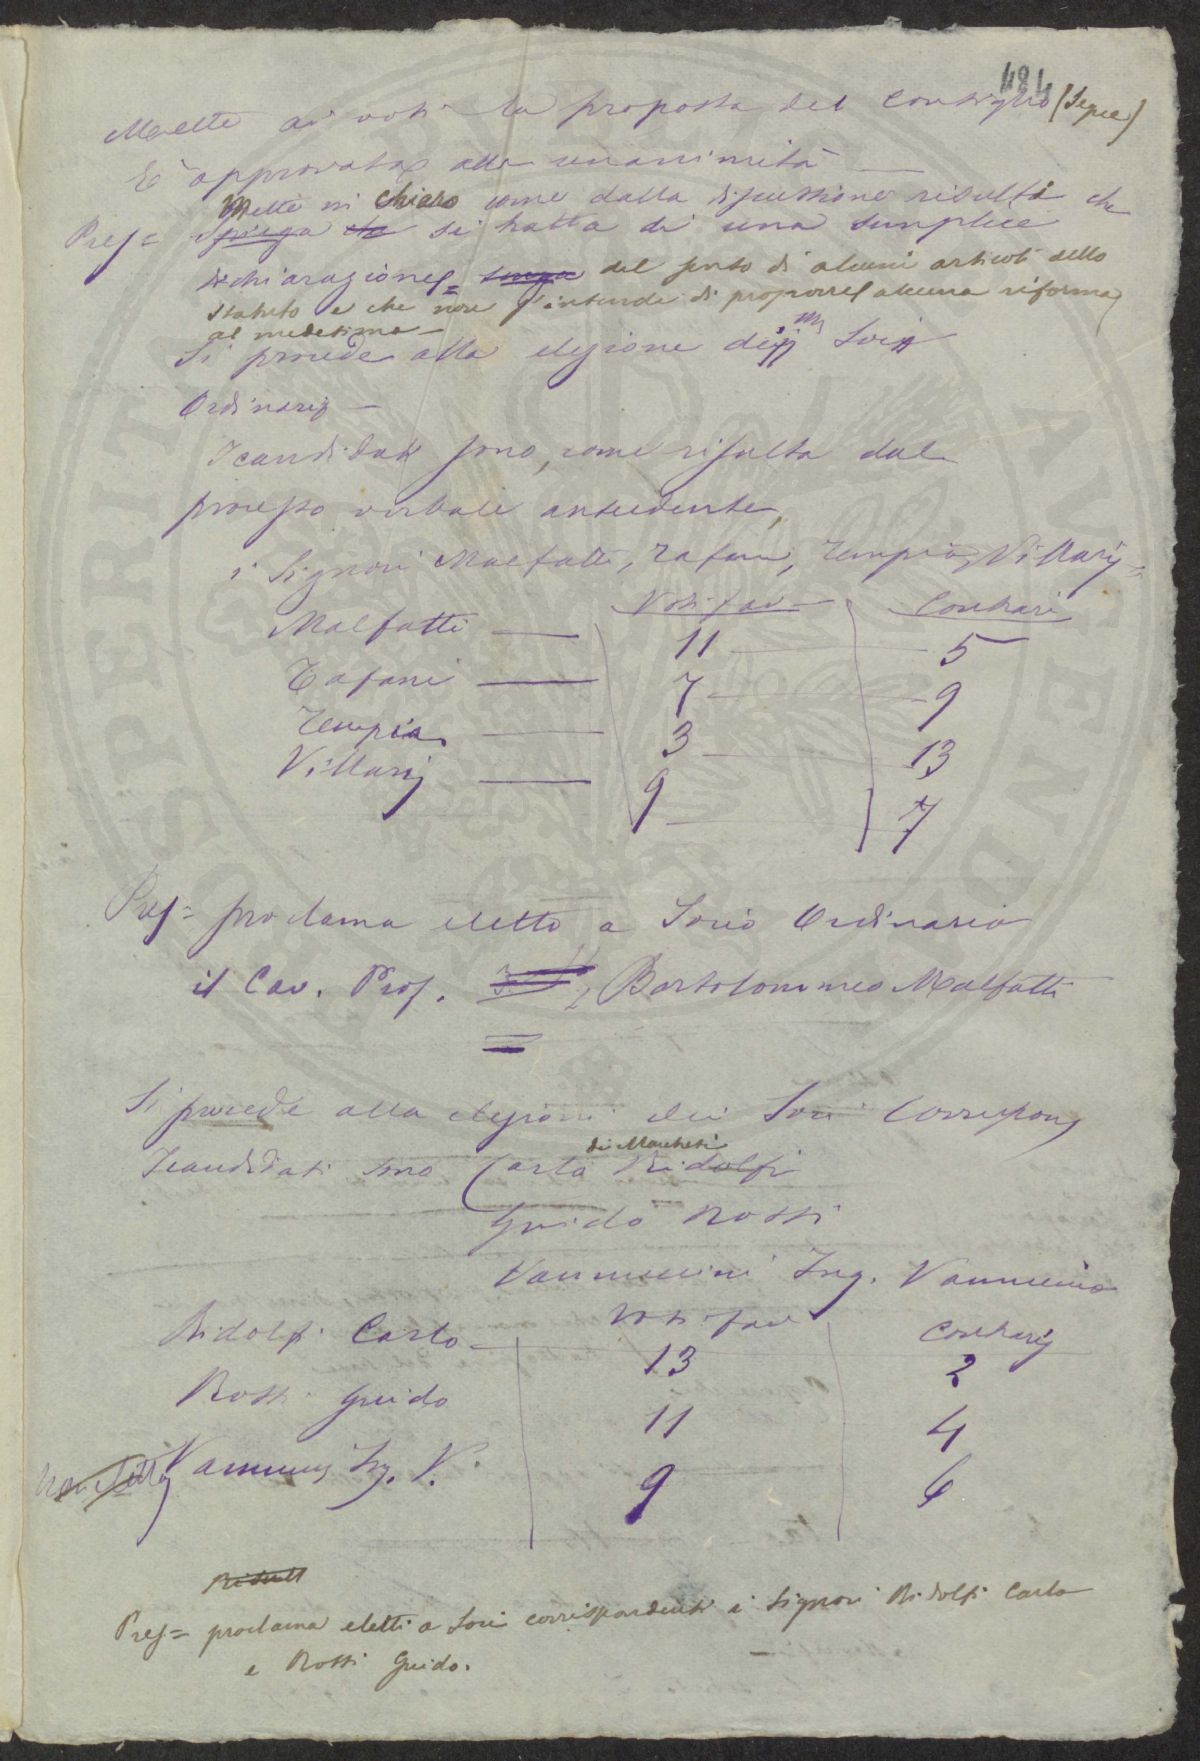 484
Mette ai voti la proposta del Consiglio (Segue)
È approvata alla unanimità
Mette in chiaro come dalla discussione risulti che
Pres= spiega che si tratta di una semplice
dichiarazione = senza del senso di alcuni articoli dello
statuto e che non s'intende di proporre alcuna riforma
al medesimo —
Si procede alla elezione dei Soci
Ordinarj —
I candidati sono, come risulta dal
processo verbale antecedente,
i Signori Malfatti, Tafani, Tempia, Villarj =
Voti fav. Contrari
Malfatti — 11 5
Tafani — 7 9
Tempia — 3 13
Villarj — 9 7
Pres= proclama eletto a Socio Ordinario
il Cav. Prof. Bartolommeo Malfatti
Si procede alla elezione dei Soci Corrispon
di Marchesi
I candidati sono Carlo Ridolfi
Guido Rossi
Vannuccini Ing. Vannuccio
Voti fav Contrarj
Ridolfi Carlo 13 2
Rossi Guido 11 4
Vannucc Ing. V. 9 6
Pres= proclama eletti a Soci corrispondenti i Signori Ridolfi Carlo
e Rossi Guido. —